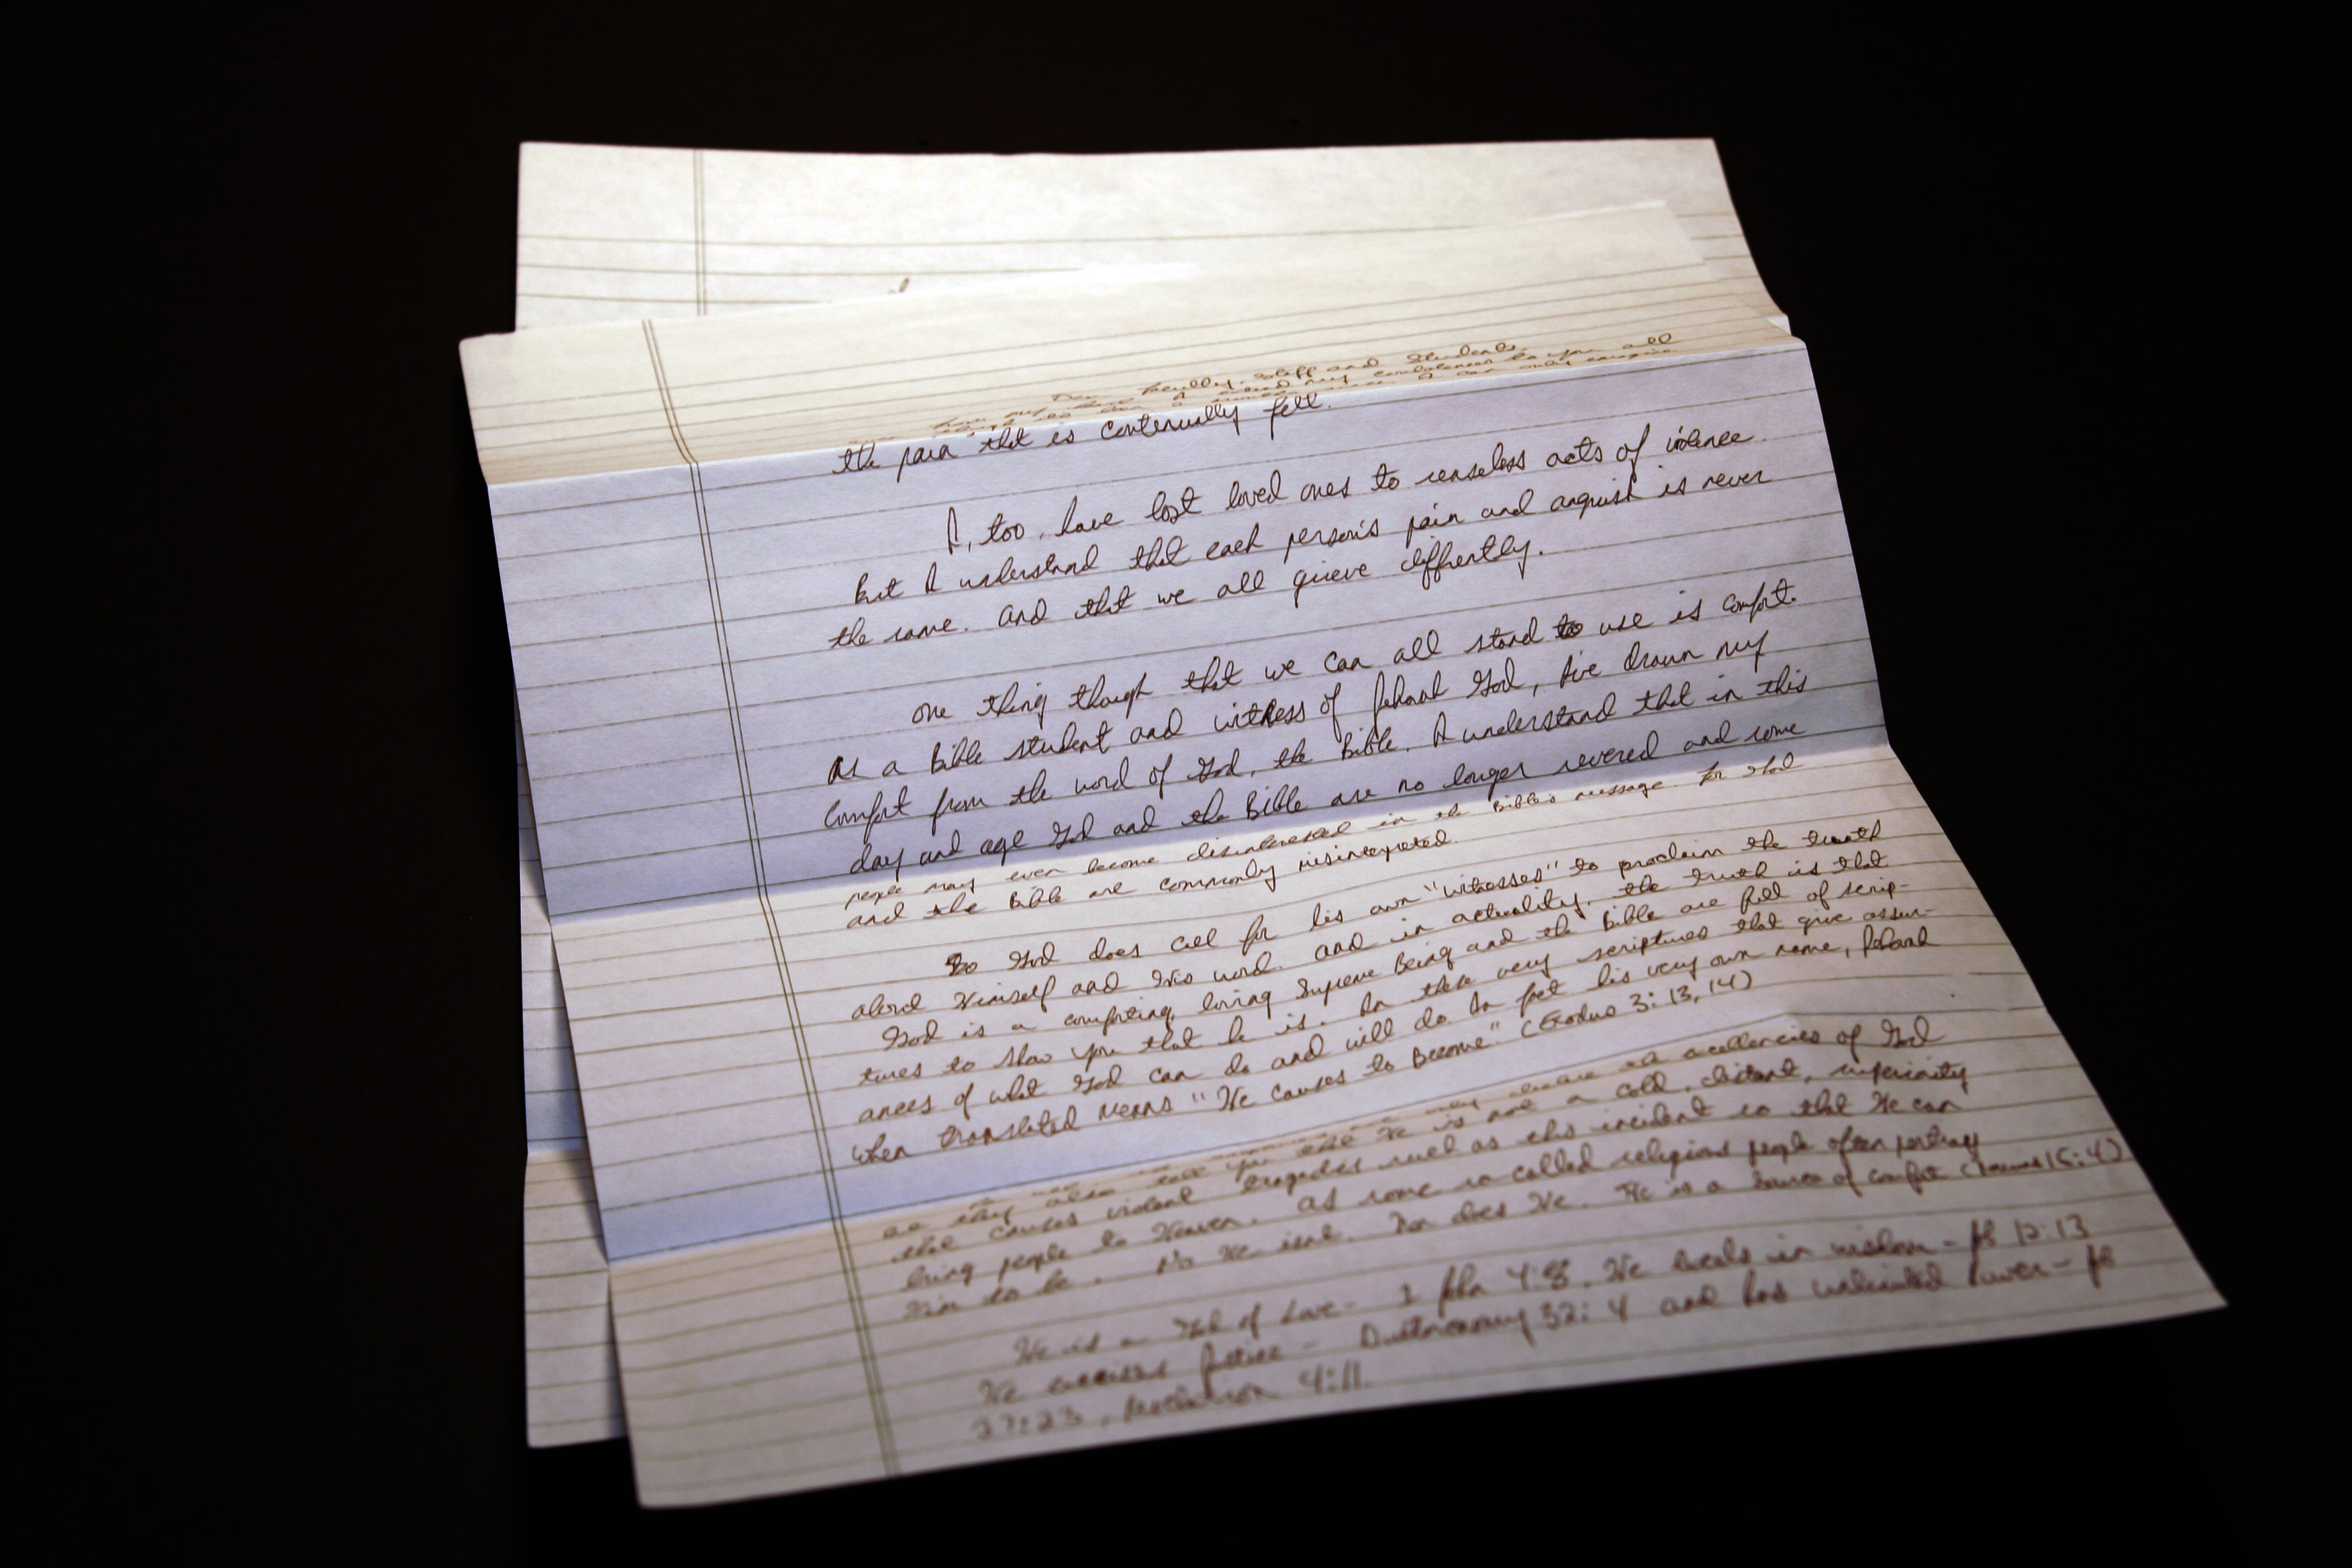 Dear faculty, staff and students,
send my condolences to you all
I can only imagine
the pain that is contenually felt.
I, too, have lost loved ones to senseless acts of violence.
But I understand that each person's pain and anguish is never
the same. and that we all grieve diffrently.
one thing though that we can all stand to use is comfort.
As a Bible student and witness of Jehovah God, I've drawn my
comfort from the word of God, the Bible. I understand that in this
day and age God and the Bible are no longer revered and some
people may even become disinterested in the Bible's message. for God
and the Bible are commonly misinterpreted.
So God does call for his own "witnesses" to proclaim the truth
about Himself and His word. and in actuality, the truth is that
God is a comforting, loving Supreme Being and the Bible are full of scrip-
tures to show you that he is. In these very scriptures that give assur-
ances of what God can do and will do. In fact his very own name, Jehovah
when translated means "He causes to Become". (Exodus 3:13,14)
excellencies of God
as they also tell you that He is not a cold, distant,
that causes violent tragedies such as this incident so that He can
bring people to Heaven. as some so-called religious people often portray
Him to be. No He isnt. Nor does He. He is a source of comfort 15:4)
He is a God of Love - 1 John 4:8. He excels in wisdom - Job 12:13
He exercises Justice - Deuteronomy 32:4 and has unlimited Power - Job
37:23, Revelation 4:11.